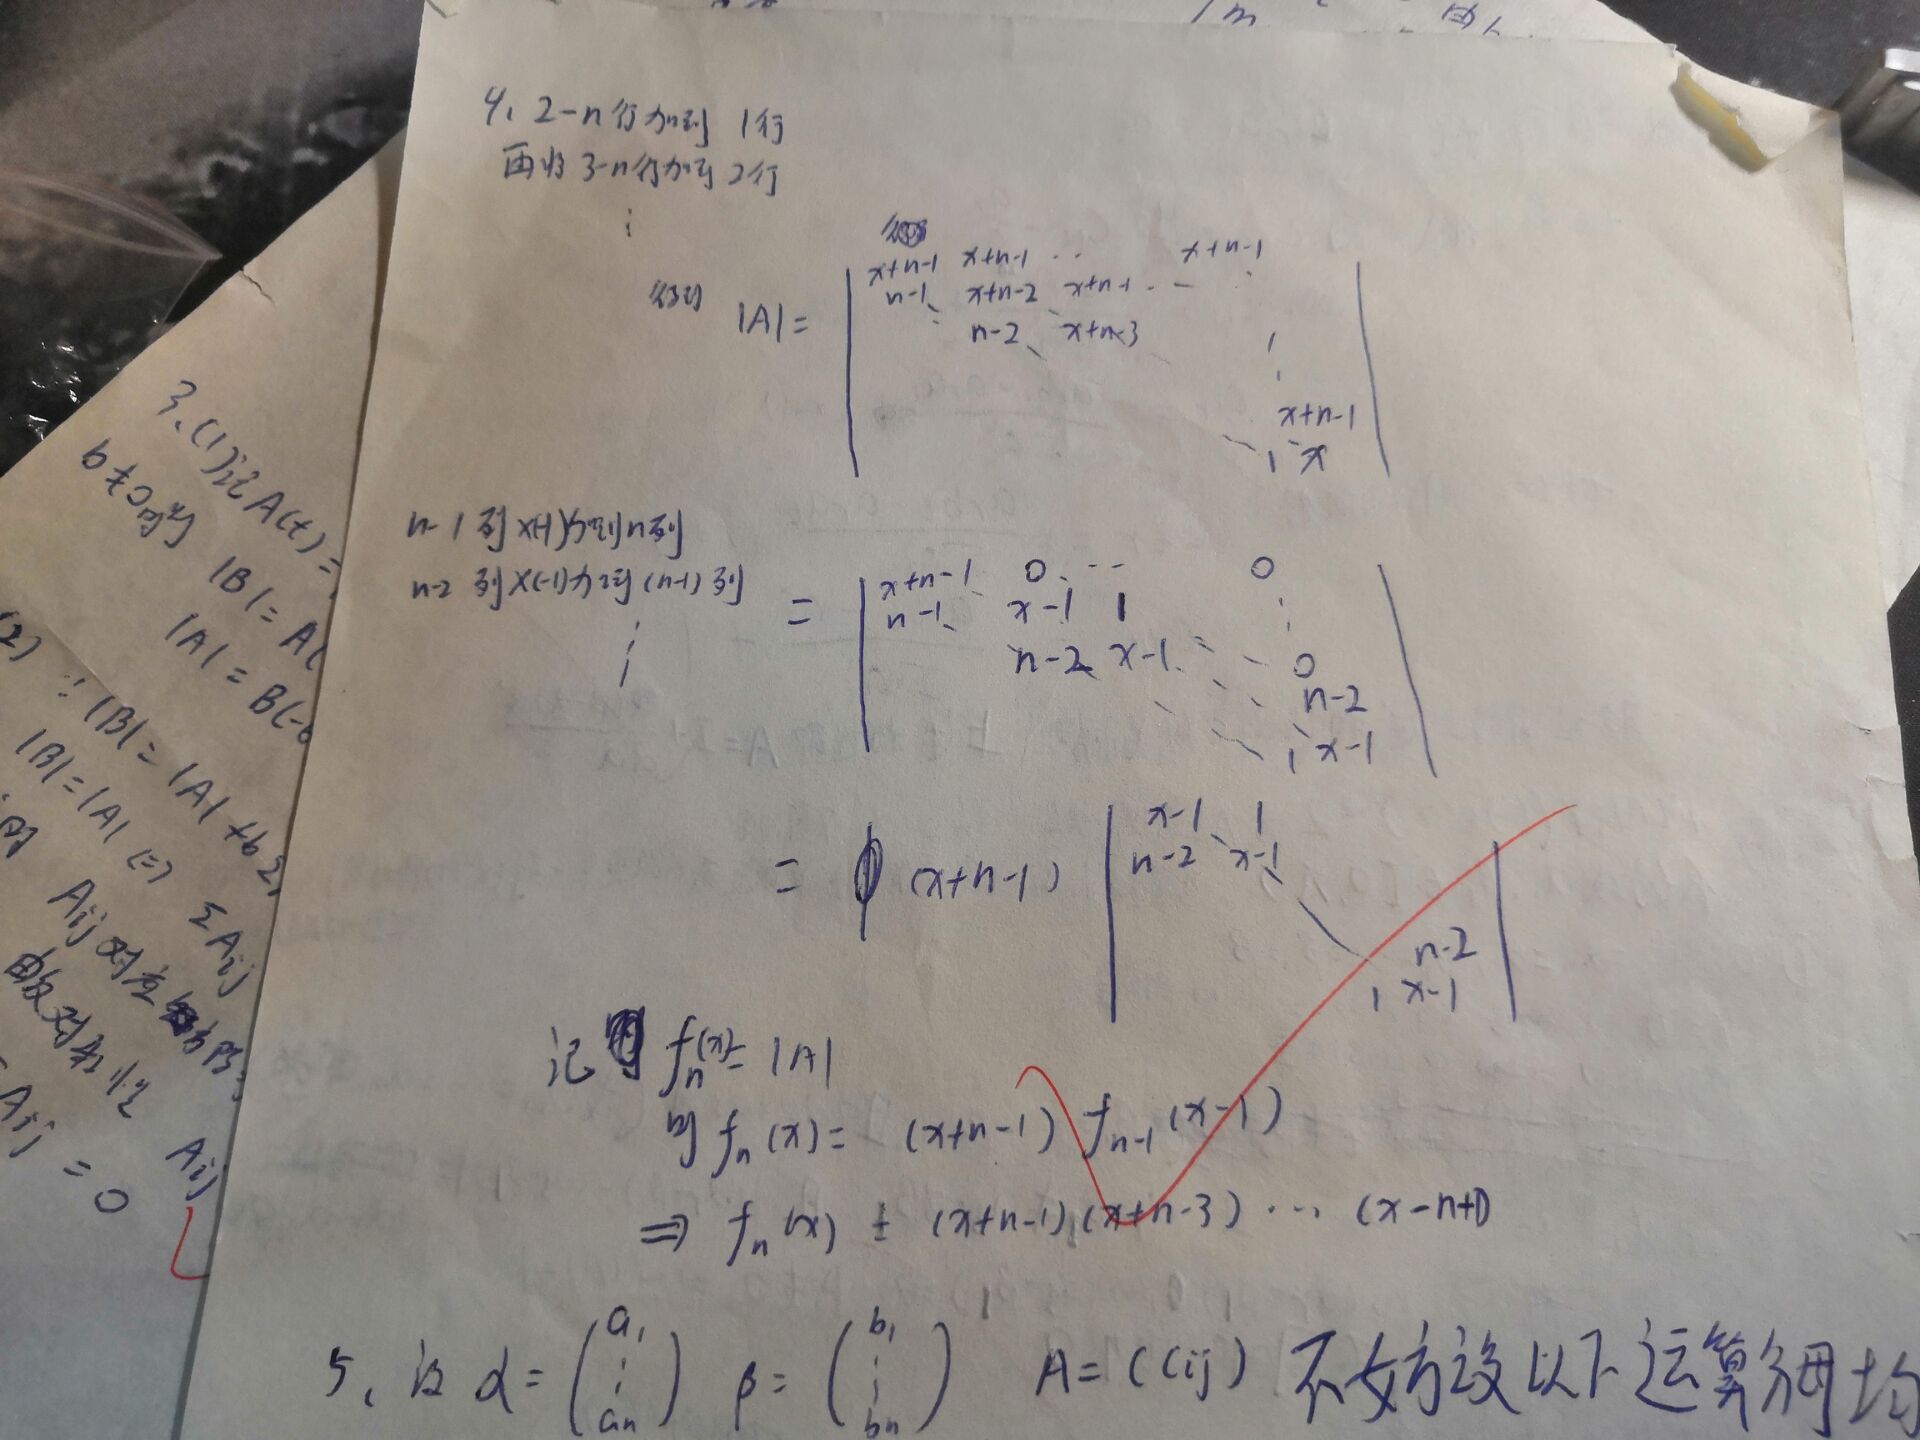 4、2-n行加到 1行
再将3-n行加到2行
⋮
得到 |A| =
x+n-1 x+n-1 ·· x+n-1
n-1 x+n-2 x+n-1
n-2 x+n-3
x+n-1
1 x
n-1列×(-1)加到n列
n-2列×(-1)加到(n-1)列
⋮
=
x+n-1 0 ··· 0
n-1 x-1 1
n-2 x-1 0
n-2
1 x-1
= (x+n-1)
x-1 1
n-2 x-1
n-2
1 x-1
记 fn(x) = |A|
则 fn(x) = (x+n-1) fn-1(x-1)
⇒ fn(x) = (x+n-1)(x+n-3) ··· (x-n+1)
5、设 α = (a1 ⋮ an) β = (b1 ⋮ bn) A = (Cij) 不妨设以下运算分母均
3、(1)记A(t) =
b≠0时
|B| = A(
|A| = B(-b
(2) ∵ |B| = |A| + bΣ
|B| = |A| ⇔ ΣAij
Aij 对应
Aij
Aij = 0